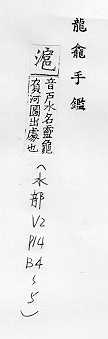 龍龕手鑑
滬
音戶水名靈龜
負河圖出處也
(水部
V2
P14
B4～5)